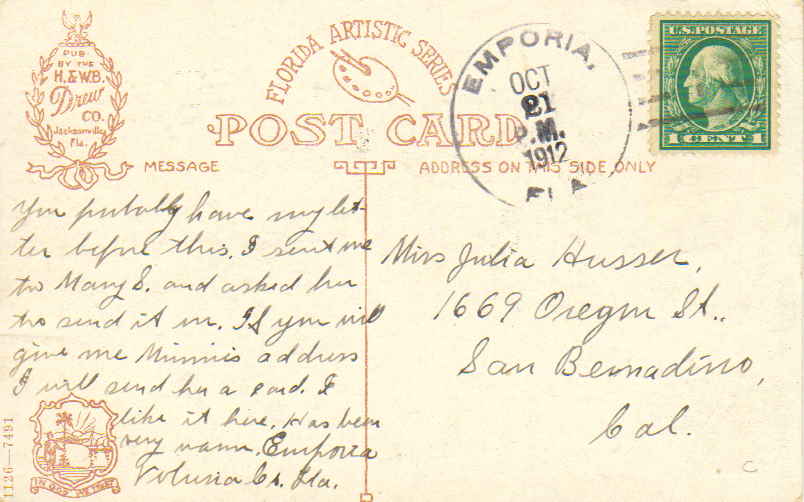 PUB.
BY THE
H. & W.B.
Drew
CO.
Jacksonville,
Fla.
FLORIDA ARTISTIC SERIES
POST CARD
EMPORIA,
OCT
21
P.M.
1912
FLA.
U.S. POSTAGE
1 CENT 1
MESSAGE
ADDRESS ON THIS SIDE ONLY
You probably have my let-
ter before this. I sent one
to Mary S. and asked her
to send it on. If you will
give me Minnie's address
I will send her a card. I
like it here. Has been
very warm. Emporia
Volusia Co. Fla.
Miss Julia Husser,
1669 Oregon St.,
San Bernadino,
Cal.
IN GOD WE TRUST
1126—7491
C